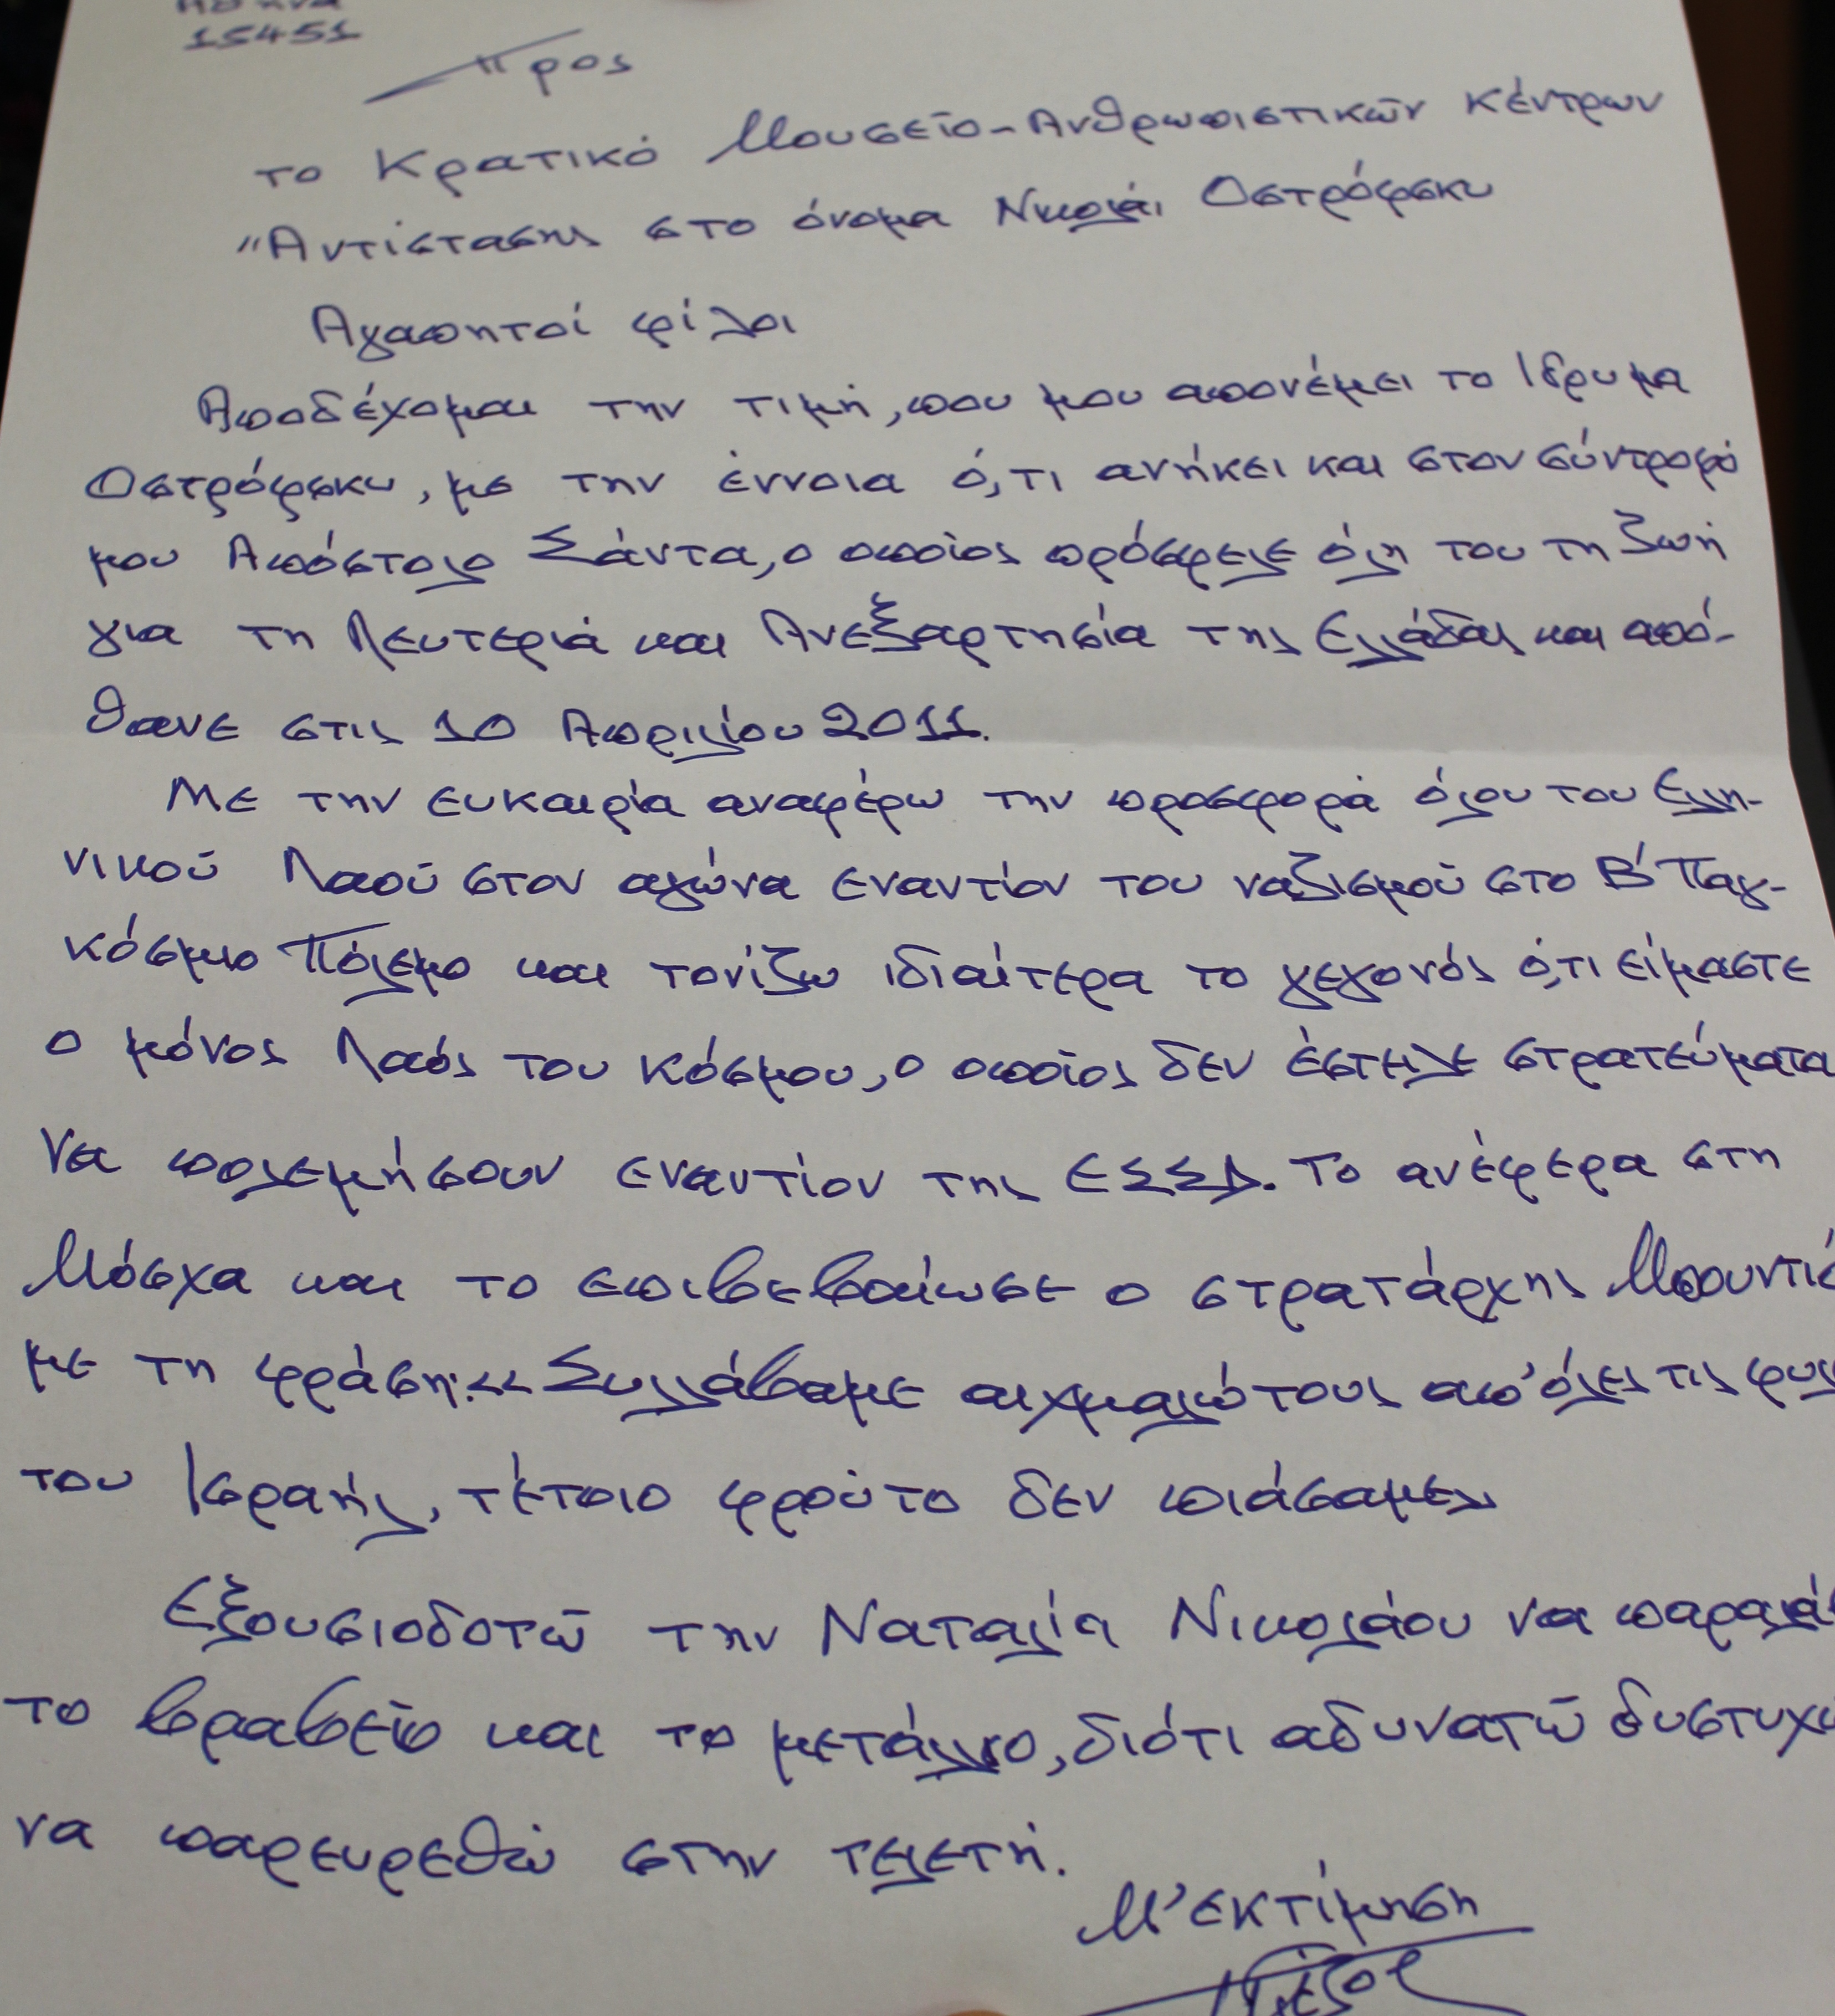 Αθήνα
15451
Προς
το Κρατικό Μουσείο-Ανθρωπιστικών Κέντρων
"Αντίστασης στο όνομα Νικολάι Οστρόφσκυ
Αγαπητοί φίλοι
Αποδέχομαι την τιμή, που μου απονέμει το Ίδρυμα
Οστρόφσκυ, με την έννοια ό,τι ανήκει και στον σύντροφό
μου Απόστολο Σάντα, ο οποίος πρόσφερε όλη του τη ζωή
για τη Λευτεριά και Ανεξαρτησία της Ελλάδας και από-
θανε στις 10 Απριλίου 2011.
Με την ευκαιρία αναφέρω την προσφορά όλου του Ελλη-
νικού Λαού στον αγώνα εναντίον του ναζισμού στο Β' Παγ-
κόσμιο Πόλεμο και τονίζω ιδιαίτερα το γεγονός ό,τι είμαστε
ο μόνος Λαός του κόσμου, ο οποίος δεν έστειλε στρατεύματα
να πολεμήσουν εναντίον της ΕΣΣΔ. Το ανέφερα στη
Μόσχα και το επιβεβαίωσε ο στρατάρχης
με τη φράση: «Συλλάβαμε αιχμαλώτους απ' όλες τις φυλ
του Ισραήλ, τέτοιο φρούτο δεν πιάσαμε»
Εξουσιοδοτώ την Ναταλία Νικολάου να παραλάβ
το βραβείο και το μετάλλιο, διότι αδυνατώ δυστυχώ
να παρευρεθώ στην τελετή.
Μ' εκτίμηση